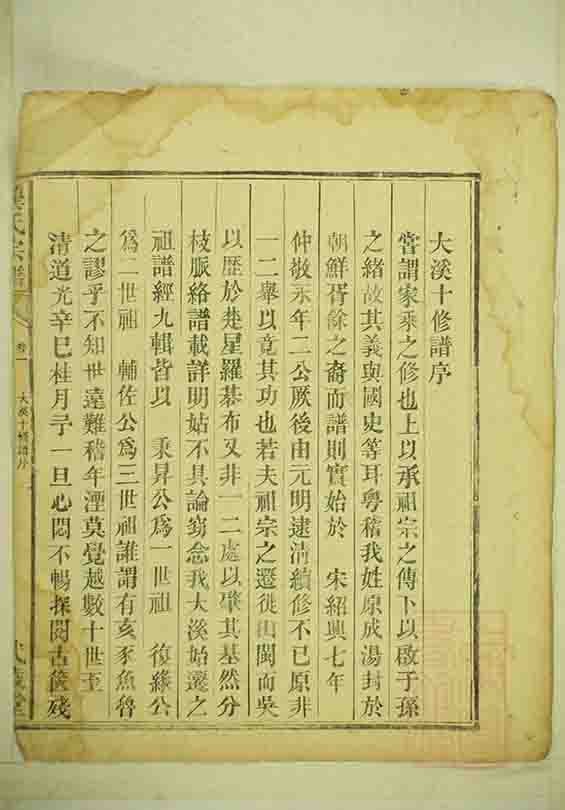 大溪十修譜序
嘗謂家乘之修也上以承祖宗之傳下以啟子孫
之緒故其義與國史等耳粵稽我姓原成湯封於
朝鮮胥餘之裔而譜則實始於 宋紹興七年
仲敬永年二公厥後由元明逮清續修不已原非
一二舉以竟其功也若夫祖宗之遷徙由閩而吳
以歷於楚星羅棊布又非一二處以肇其基然分
枝脈絡譜載詳明姑不具論窃念我大溪始遷之
祖譜經九輯皆以 秉昇公為一世祖 復緣公
為二世祖 輔佐公為三世祖誰謂有亥豕魚魯
之謬乎不知世遠難稽年湮莫覺越數十世至
清道光辛巳桂月予一旦心悶不暢探閱古篋殘
氏宗譜 卷一 大溪十修譜序